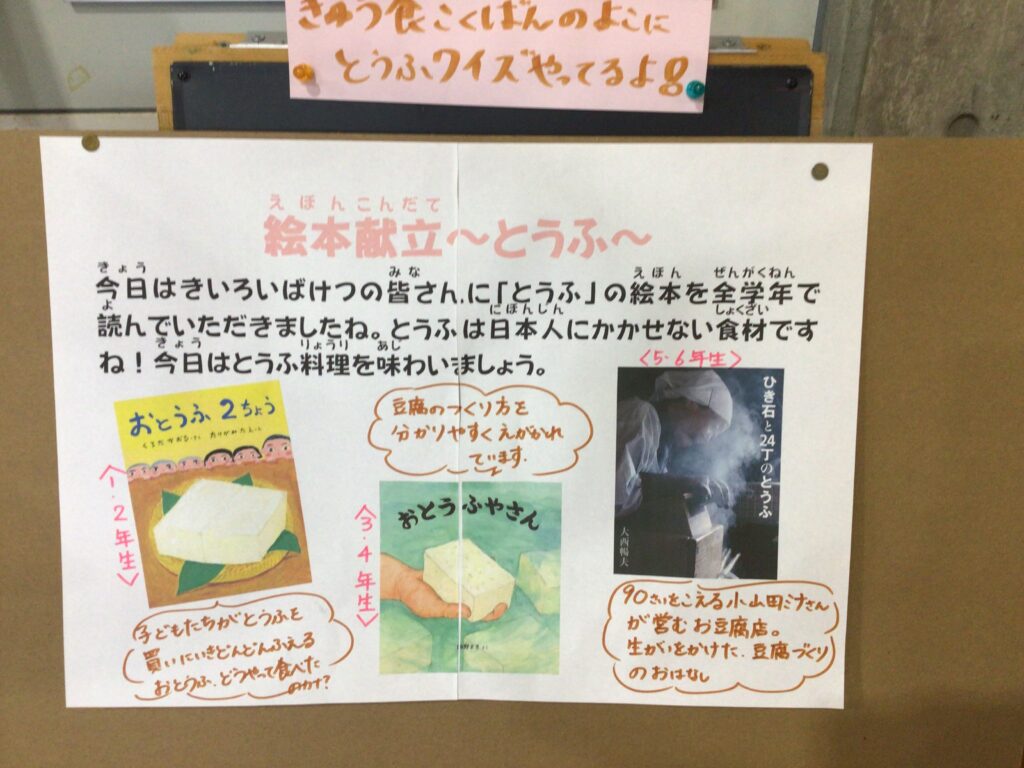 きゅう食こくばんのよこに
とうふクイズやってるよ!
えほんこんだて
絵本献立～とうふ～
きょう みな えほん ぜんがくねん
今日はきいろいばけつの皆さんに「とうふ」の絵本を全学年で
よ にほんじん しょくざい
読んでいただきましたね。とうふは日本人にかかせない食材です
きょう りょうり あじ
ね!今日はとうふ料理を味わいましょう。
<1・2年生>
おとうふ2ちょう
くろだかおる・さく たけがみたえ・え
子どもたちがとうふを
買いにいきどんどんふえる
おとうふ、どうやって食べた
のかな?
豆腐のつくり方を
分かりやすくえがかれ
ています。
<3・4年生>
おとうふやさん
<5・6年生>
ひき石と24丁のとうふ
大西暢夫
90さいをこえる小山田ミナさん
が営むお豆腐店。
生がいをかけた、豆腐づくり
のおはなし